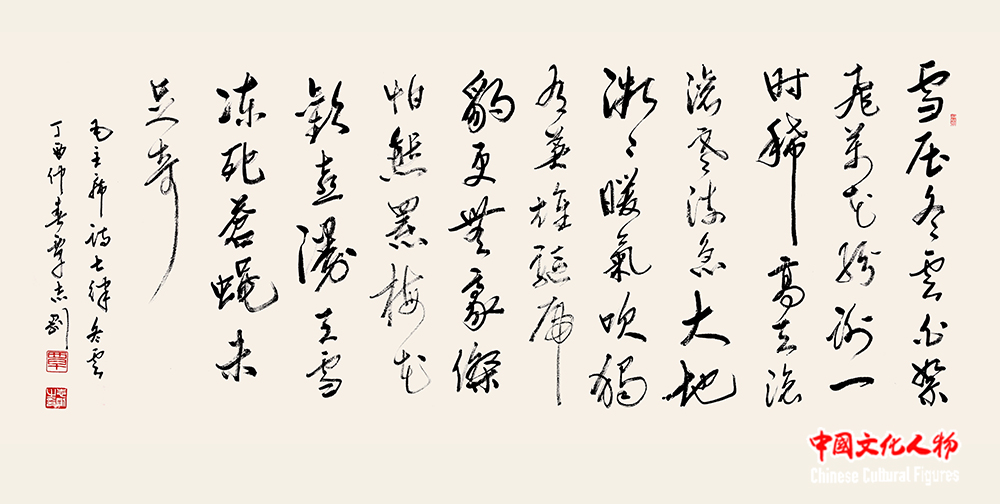 雪压冬雲白絮
飛萬花纷谢一
时稀高天滚
滚寒流急大地
微微暖氣吹獨
有英雄驱虎
豹更無豪傑
怕熊羆梅花
歡喜漫天雪
冻死蒼蝇未
足奇
毛主席诗七律冬雲
丁酉仲春覃志剛
中國文化人物
Chinese Cultural Figures